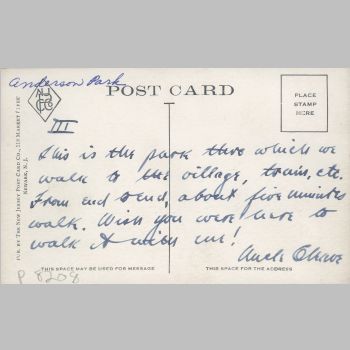 Anderson Park
POST CARD
PLACE
STAMP
HERE
III
This is the park thru which we
walk to the village, train, etc.
From end to end, about five minutes
walk. Wish you were here to
walk it with me!
Uncle
THIS SPACE MAY BE USED FOR MESSAGE
THIS SPACE FOR THE ADDRESS
P 8208
PUB. BY THE NEW JERSEY POST CARD CO., MARKET
NEWARK, N.J.